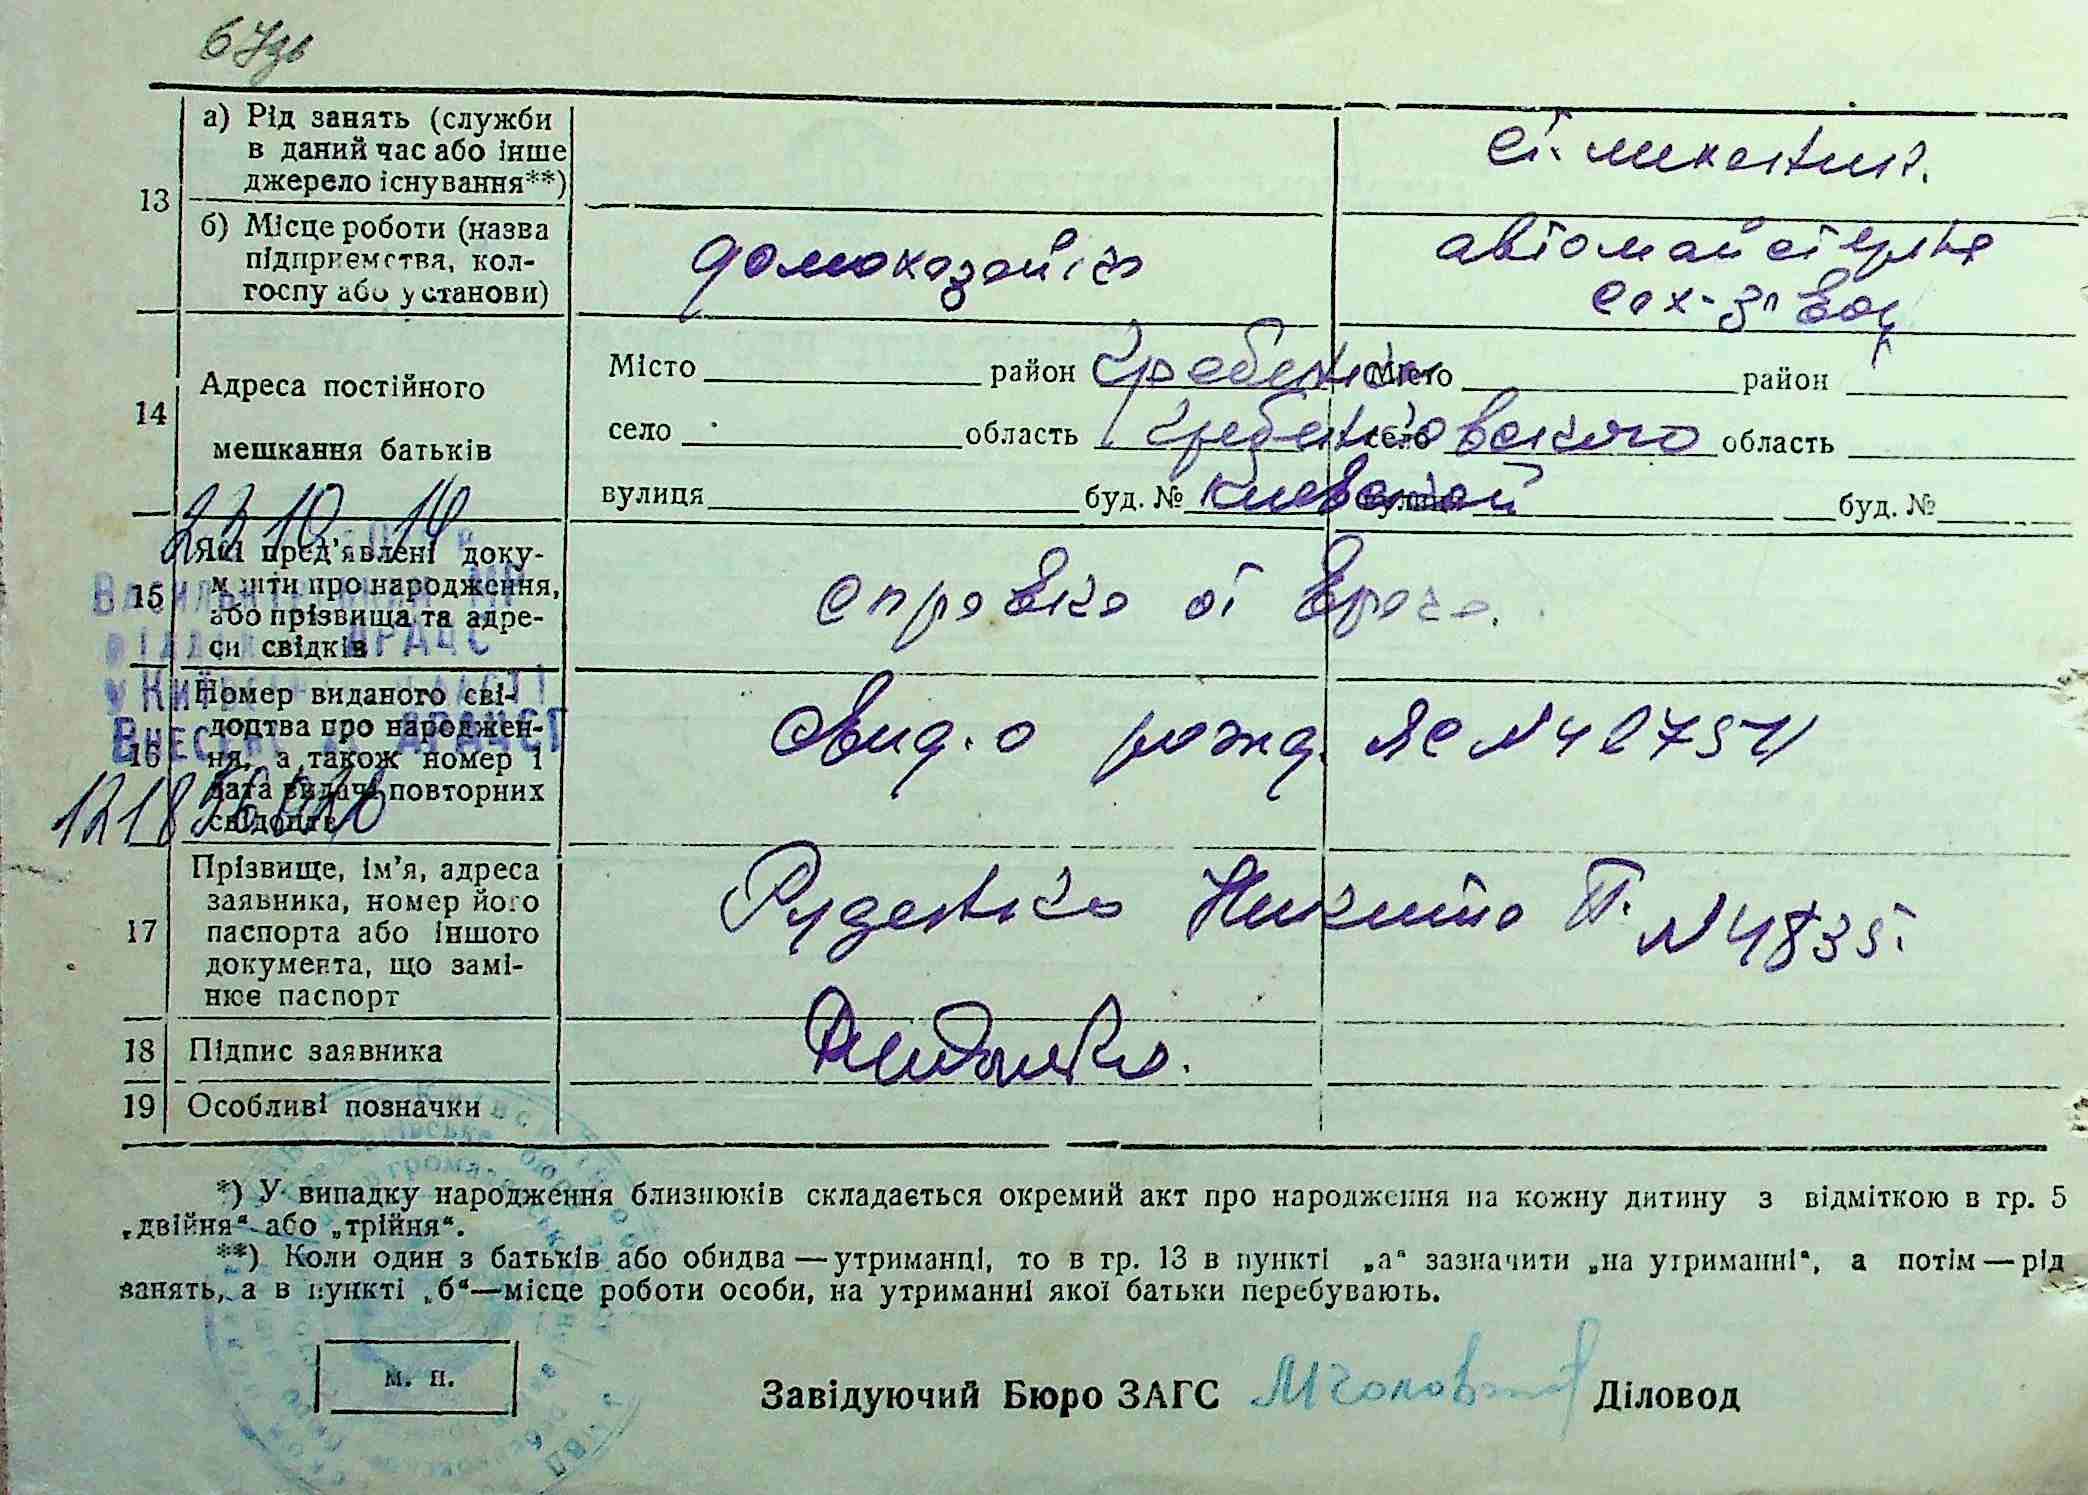 13
а) Рід занять (служби
в даний час або інше
джерело існування**)
ст. механик.
б) Місце роботи (назва
підприємства, кол-
госпу або установи)
домохазяйка
автомайстерня
сах-завод
14
Адреса постійного
мешкання батьків
Місто район Гребенки Місто район
село область Гребенковского село область
вулиця буд. № Киевской вулиця буд. №
15
Які пред'явлені доку-
менти про народження,
або прізвища та адре-
си свідків
справка от врача.
16
Номер виданого сві-
доцтва про народжен-
ня, а також номер і
дата видачі повторних
свідоцтв
Свид. о рожд. ЯС №
17
Прізвище, ім'я, адреса
заявника, номер його
паспорта або іншого
документа, що замі-
нює паспорт
Руденко Никита П. № 4835
18 Підпис заявника
19 Особливі позначки
*) У випадку народження близнюків складається окремий акт про народження на кожну дитину з відміткою в гр. 5
„двійня“ або „трійня“.
**) Коли один з батьків або обидва — утриманці, то в гр. 13 в пункті „а“ зазначити „на утриманні“, а потім — рід
занять, а в пункті „б“—місце роботи особи, на утриманні якої батьки перебувають.
м. п.
Завідуючий Бюро ЗАГС Діловод